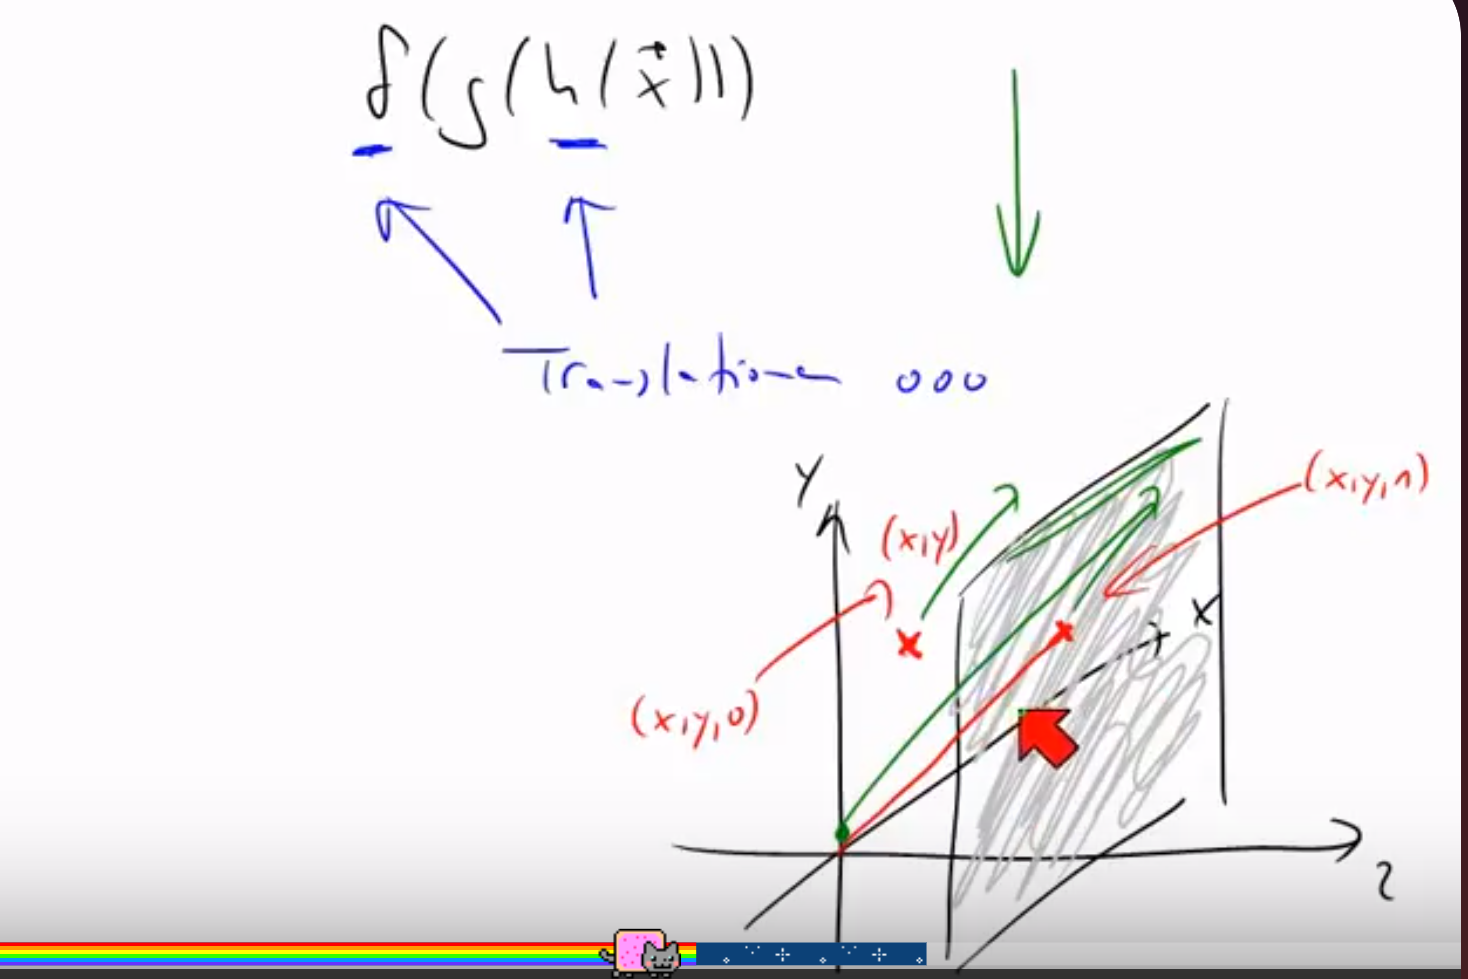 f(g(h(x⃗)))
Translationen ooo
Y
(x,y)
(x,y,1)
X
(x,y,0)
z